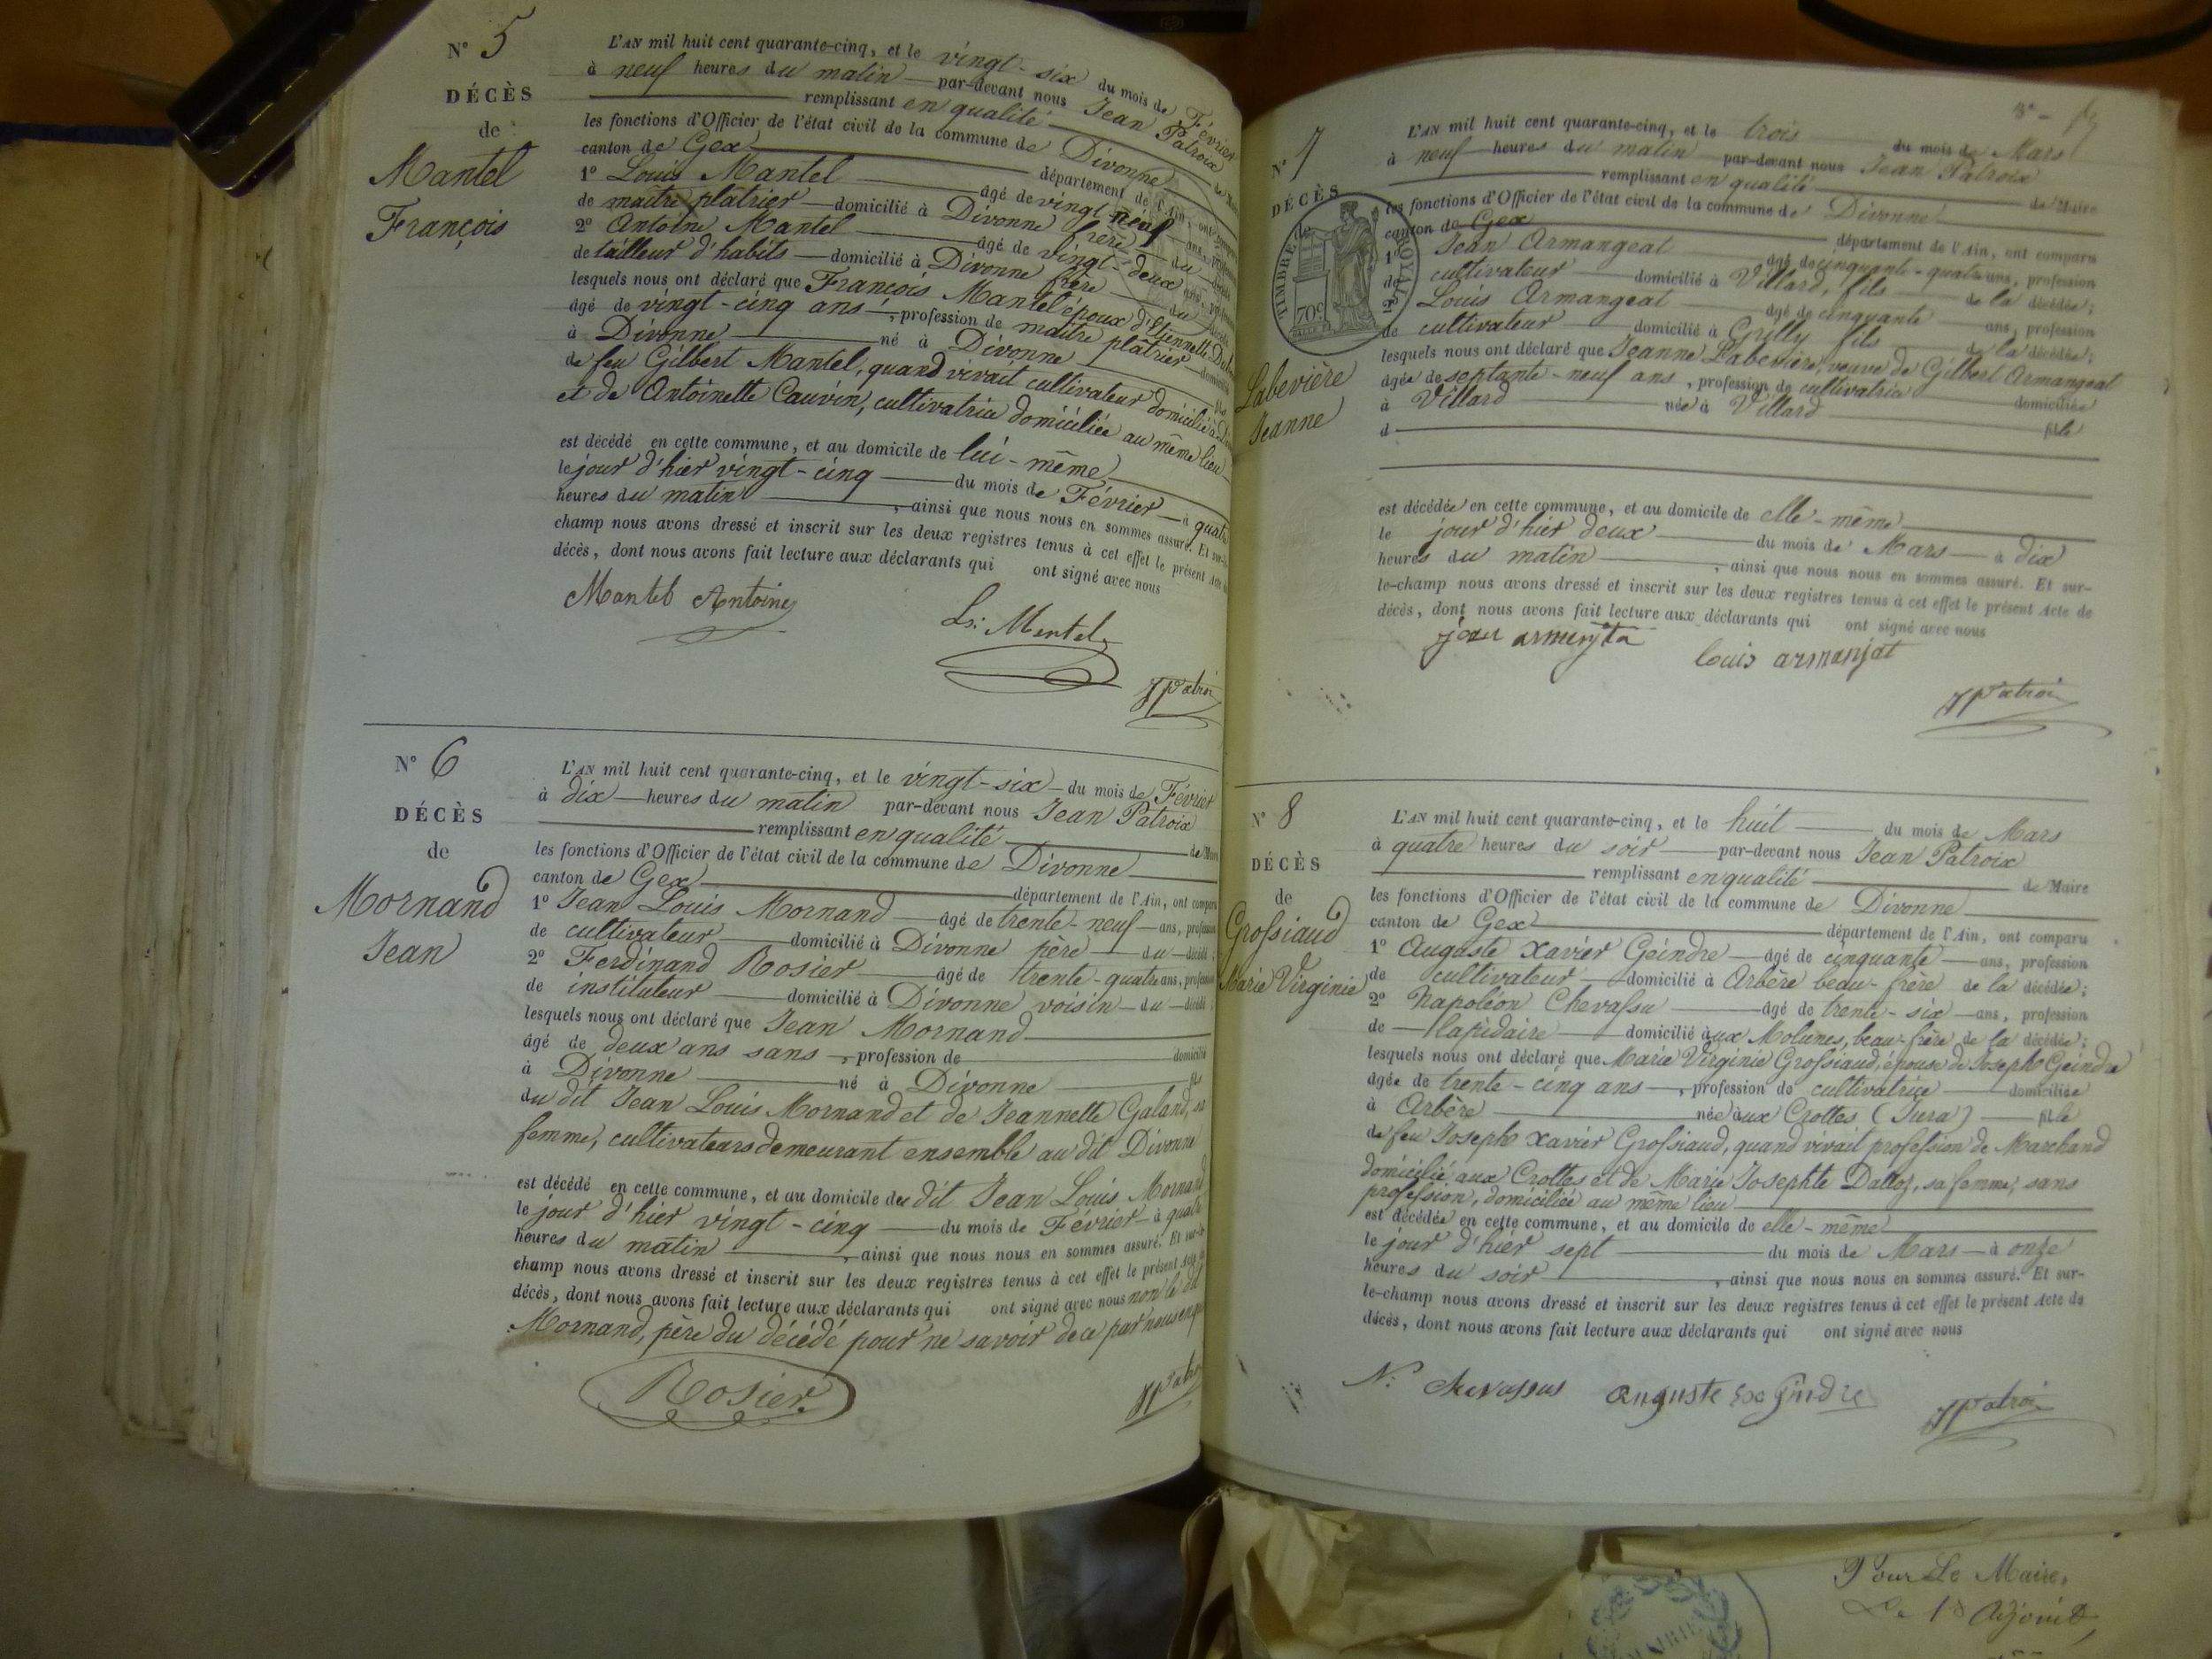 N° 5
DÉCÈS
de
Mantel
François
L'AN mil huit cent quarante-cinq, et le vingt-six du mois de Février
à neuf heures du matin par-devant nous Jean Patroix
remplissant en qualité de Maire
les fonctions d'Officier de l'état civil de la commune de Divonne
canton de Gex département de l'Ain, ont comparu
1° Louis Mantel âgé de vingt neuf ans, profession
de maître plâtrier domicilié à Divonne frère du décédé
2° Antoine Mantel âgé de vingt-deux ans, profession
de tailleur d'habits domicilié à Divonne frère du décédé
lesquels nous ont déclaré que François Mantel époux d'Etiennette
âgé de vingt-cinq ans, profession de maître plâtrier domicilié
à Divonne né à Divonne fils
de feu Gilbert Mantel, quand vivait cultivateur domicilié à
et de Antoinette Cauvin, cultivatrice domiciliée au même lieu
est décédé en cette commune, et au domicile de lui-même
le jour d'hier vingt-cinq du mois de Février à quatre
heures du matin, ainsi que nous nous en sommes assuré. Et sur-le-
champ nous avons dressé et inscrit sur les deux registres tenus à cet effet le présent Acte de
décès, dont nous avons fait lecture aux déclarants qui ont signé avec nous
Mantel Antoine
Ls: Mantel
JPatroi
N° 6
DÉCÈS
de
Mornand
Jean
L'AN mil huit cent quarante-cinq, et le vingt-six du mois de Février
à dix heures du matin par-devant nous Jean Patroix
remplissant en qualité de Maire
les fonctions d'Officier de l'état civil de la commune de Divonne
canton de Gex département de l'Ain, ont comparu
1° Jean Louis Mornand âgé de trente-neuf ans, profession
de cultivateur domicilié à Divonne père du décédé
2° Ferdinand Rosier âgé de trente-quatre ans, profession
de instituteur domicilié à Divonne voisin du décédé
lesquels nous ont déclaré que Jean Mornand
âgé de deux ans sans, profession de domicilié
à Divonne né à Divonne fils
du dit Jean Louis Mornand et de Jeannette Galand, sa
femme, cultivateurs demeurant ensemble au dit Divonne
est décédé en cette commune, et au domicile du dit Jean Louis Mornand
le jour d'hier vingt-cinq du mois de Février à quatre
heures du matin, ainsi que nous nous en sommes assuré. Et sur-le-
champ nous avons dressé et inscrit sur les deux registres tenus à cet effet le présent Acte de
décès, dont nous avons fait lecture aux déclarants qui ont signé avec nous non le dit
Mornand, père du décédé pour ne savoir de ce par nous enquis
Rosier
JPatroi
N° 7
DÉCÈS
de
TIMBRE ROYAL
70c
Labevière
Jeanne
L'AN mil huit cent quarante-cinq, et le trois du mois de Mars
à neuf heures du matin par-devant nous Jean Patroix
remplissant en qualité de Maire
les fonctions d'Officier de l'état civil de la commune de Divonne
canton de Gex département de l'Ain, ont comparu
1° Jean Armangeat âgé de cinquante-quatre ans, profession
de cultivateur domicilié à Villard, fils de la décédée;
2° Louis Armangeat âgé de cinquante ans, profession
de cultivateur domicilié à Grilly fils de la décédée;
lesquels nous ont déclaré que Jeanne Labevière, veuve de Gilbert Armangeat
âgée de septante-neuf ans, profession de cultivatrice domiciliée
à Villard née à Villard fille
d
est décédée en cette commune, et au domicile de elle-même
le jour d'hier deux du mois de Mars à dix
heures du matin, ainsi que nous nous en sommes assuré. Et sur-
le-champ nous avons dressé et inscrit sur les deux registres tenus à cet effet le présent Acte de
décès, dont nous avons fait lecture aux déclarants qui ont signé avec nous
louis armanjat
JPatroi
N° 8
DÉCÈS
de
Grossiaud
Marie Virginie
L'AN mil huit cent quarante-cinq, et le huit du mois de Mars
à quatre heures du soir par-devant nous Jean Patroix
remplissant en qualité de Maire
les fonctions d'Officier de l'état civil de la commune de Divonne
canton de Gex département de l'Ain, ont comparu
1° Auguste Xavier Geindre âgé de cinquante ans, profession
de cultivateur domicilié à Arbère beau-frère de la décédée;
2° Napoléon Chevassu âgé de trente-six ans, profession
de lapidaire domicilié aux Molunes, beau-frère de la décédée;
lesquels nous ont déclaré que Marie Virginie Grossiaud, épouse de Joseph Geindre
âgée de trente-cinq ans, profession de cultivatrice domiciliée
à Arbère née aux Crottes (Jura) fille
de feu Joseph Xavier Grossiaud, quand vivait profession de Marchand
domicilié aux Crottes et de Marie Josephte Dalloz, sa femme, sans
profession, domiciliée au même lieu
est décédée en cette commune, et au domicile de elle-même
le jour d'hier sept du mois de Mars à onze
heures du soir, ainsi que nous nous en sommes assuré. Et sur-
le-champ nous avons dressé et inscrit sur les deux registres tenus à cet effet le présent Acte de
décès, dont nous avons fait lecture aux déclarants qui ont signé avec nous
N: Chevassus
Auguste x gindre
JPatroi
Pour Le Maire,
Le 1er Adjoint,